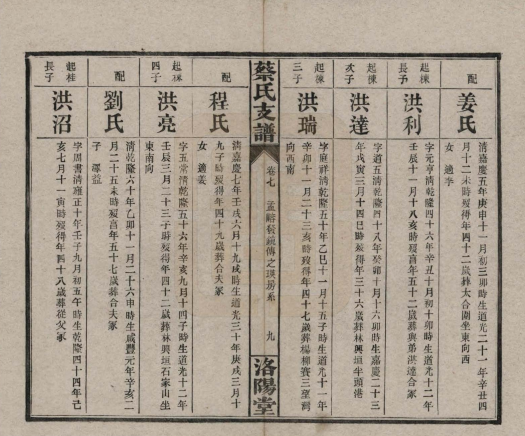 配
姜氏
清嘉慶五年庚申十一月初三卯時生道光二十一年辛丑四
月十二未時歿得年四十二歲葬太合圍坐東向西
女 適李
起棟
長子
洪利
字元亨清乾隆四十六年辛丑十月初十卯時生道光十二年
壬辰十一月十八亥時歿享年五十二歲葬與弟洪達合冢
起棟
次子
洪達
字道五清乾隆四十八年癸卯十月十六卯時生嘉慶二十三
年戊寅三月十四巳時歿得年三十六歲葬林興垣半頭港
起棟
三子
洪瑞
字庭祥清乾隆五十年乙巳十一月十五子時生道光十一年
辛卯十一月二十三亥時歿得年四十七歲葬楊柳賽三望灣
向西南
蔡氏支譜
卷七
九
洛陽堂
配
程氏
清嘉慶七年壬戌六月十九戌時生道光三十年庚戌三月十
九子時歿得年四十九歲葬合夫冢
女 適姜
起棟
四子
洪亮
字五常清乾隆五十六年辛亥九月十四子時生道光十二年
壬辰三月二十三子時歿得年四十二歲葬林興垣石家山坐
東南向
配
劉氏
清乾隆六十年乙卯十一月二十六申時生咸豐元年辛亥二
月二十五未時歿享年五十七歲葬合夫冢
子 澤益
起桂
長子
洪沼
字周書清雍正十年壬子九月初五午時生乾隆四十四年己
亥七月十一寅時歿得年四十八歲葬從父冢